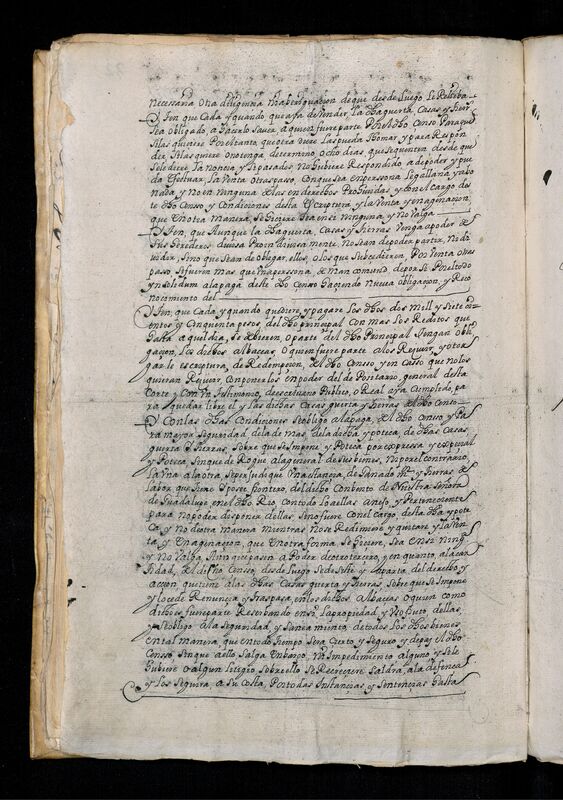 necesaria otra diligencia ni aberiguacion de que desde luego le Relieba
Y Iten que Cada y quando que aya de Vender, la Dha guerta, Casas y tierras
sea obligado, a hacerlo saver, a quien fuere parte Por el dho Censo Paraque
si las quiere Por el tanto que otra diere las pueda tomar y para Respon
der, si las quiere o no tenga de termino, ocho dias, que se quenten desde que
se le diere la noticia y si pasados no hubiere Respondido, a de poder y pue
da efectuar, la Venta o traspaso, con que sea en persona lega llana y abo
nada, y no en ninguna de las en derecho Prohiuidas, y con el Cargo des
te dho Censo y Condiciones desta escriptura y la Venta y enagenacion,
que de otra manera, se hiciere sea en si ninguna, y no Valga
Y Iten, que Aunque la Dha guerta, Casas y tierras Venga a poder de
sus herederos diuisa Pro indiuisa mente, no sean de poder partir, ni di
uidir, sino que sean de obligar, ellos, o los que subcedieren, Por Venta o tras
paso si fueren mas, que Una persona, de man comun de por si Por el todo
yn solidum a la paga deste dho Censo haciendo nueua obligacion, y Reco
nocimiento del
Y Iten, que Cada y quando que diere y pagare los dhos dos mill y siete cien
tos y cinquenta pesos, del dho principal con mas los Reditos que
hasta aquel dia, se debieren, o parte del dho Principal tengan obli
gacion, los dichos Albaceas, o quien fuere parte a los Reciuir, y otor
garle escriptura, de Redempcion, del dho Censso y en casso que no los
quieran Reciuir, con ponerlos en poder del depositario, general desta
Corte y con Un testimonio, de escriuano Publico, o Real aya cumplido, pa
ra quedar libre el y las dichas Casas guerta y tierras del dho Censo
Y Con las dhas Condiciones se obligo a la paga, del dho Censo y Pa
ra mayor seguridad, de la demas, de la dicha ypoteca, de dhas Casas
guerta y tierras, sobre que se impone y Poteca por expressa y especial
y Poteca sin que de Rogue, a la general de sus bienes, ni por el contrario,
la Una a la otra
labor que tiene y posee frontero, del dicho Conbento de Nuestra señora
de Guadalupe, en el dho Rio, con todo lo a ellas anejo, y Perteneciente
para no poder disponer dellas, sino fuere con el cargo, desta dha ypote
ca, y no de otra manera mientras no se Redimiere, y quitare y la Ven
ta y enagenacion, que de otra forma se hiciere, sea en si ning
y no Valga, ni tan que pasen a Poder de otro tercero, y en quanto, a la can
tidad, del dicho Censo, desde luego se desiste y aparta del derecho, y
accion que tiene a las dhas Casas guerta y tierras sobre que se impone
y lo cede Renuncia y traspasa, en los dichos Albaceas o quien como
dicho es fuere parte Reserbando en si, la propiedad y Vso fruto dellas,
y se obligo a la seguridad, y saneamiento, de todos los dhos bienes,
en tal manera, que en todo tiempo sera cierto y seguro y de paz el dho
Censo sin que a ello salga enbargo, ni Impedimiento alguno y si le
hubiere o algun letigio sobre ello se Recreciere saldra, a la defença
y los seguira, a su costa, Por todas Instancias, y sentencias hasta